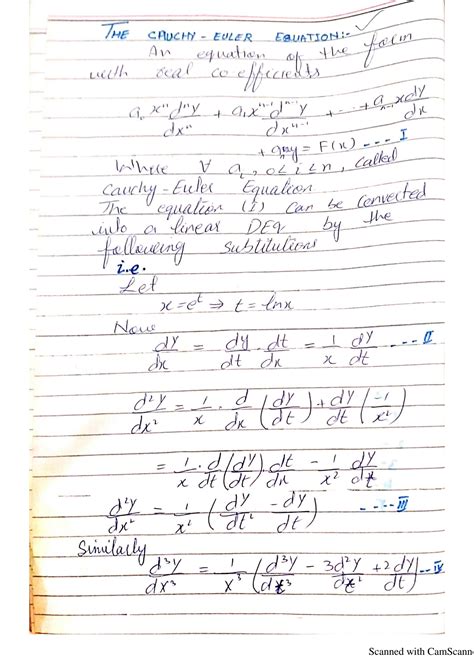 THE CAUCHY - EULER EQUATION:-
An equation of the form
with real coefficients
a₀ xⁿ dⁿy/dxⁿ + a₁ xⁿ⁻¹ dⁿ⁻¹y/dxⁿ⁻¹ + --- + aₙ₋₁ x dy/dx
+ aₙ y = F(x) --- I
Where ∀ aᵢ, 0≤i≤n, called
Cauchy-Euler Equation.
The equation (I) can be converted
into a linear DEq by the
following substitutions
i.e.
Let
x = eᵗ ⇒ t = lnx
Now
dy/dx = dy/dt · dt/dx = 1/x dy/dt --- II
d²y/dx² = 1/x · d/dx (dy/dt) + dy/dt (-1/x²)
= 1/x · d/dt (dy/dt) · dt/dx - 1/x² dy/dt
d²y/dx² = 1/x² (d²y/dt² - dy/dt) --- III
Similarly
d³y/dx³ = 1/x³ (d³y/dt³ - 3d²y/dt² + 2dy/dt) -- IV
Scanned with CamScann